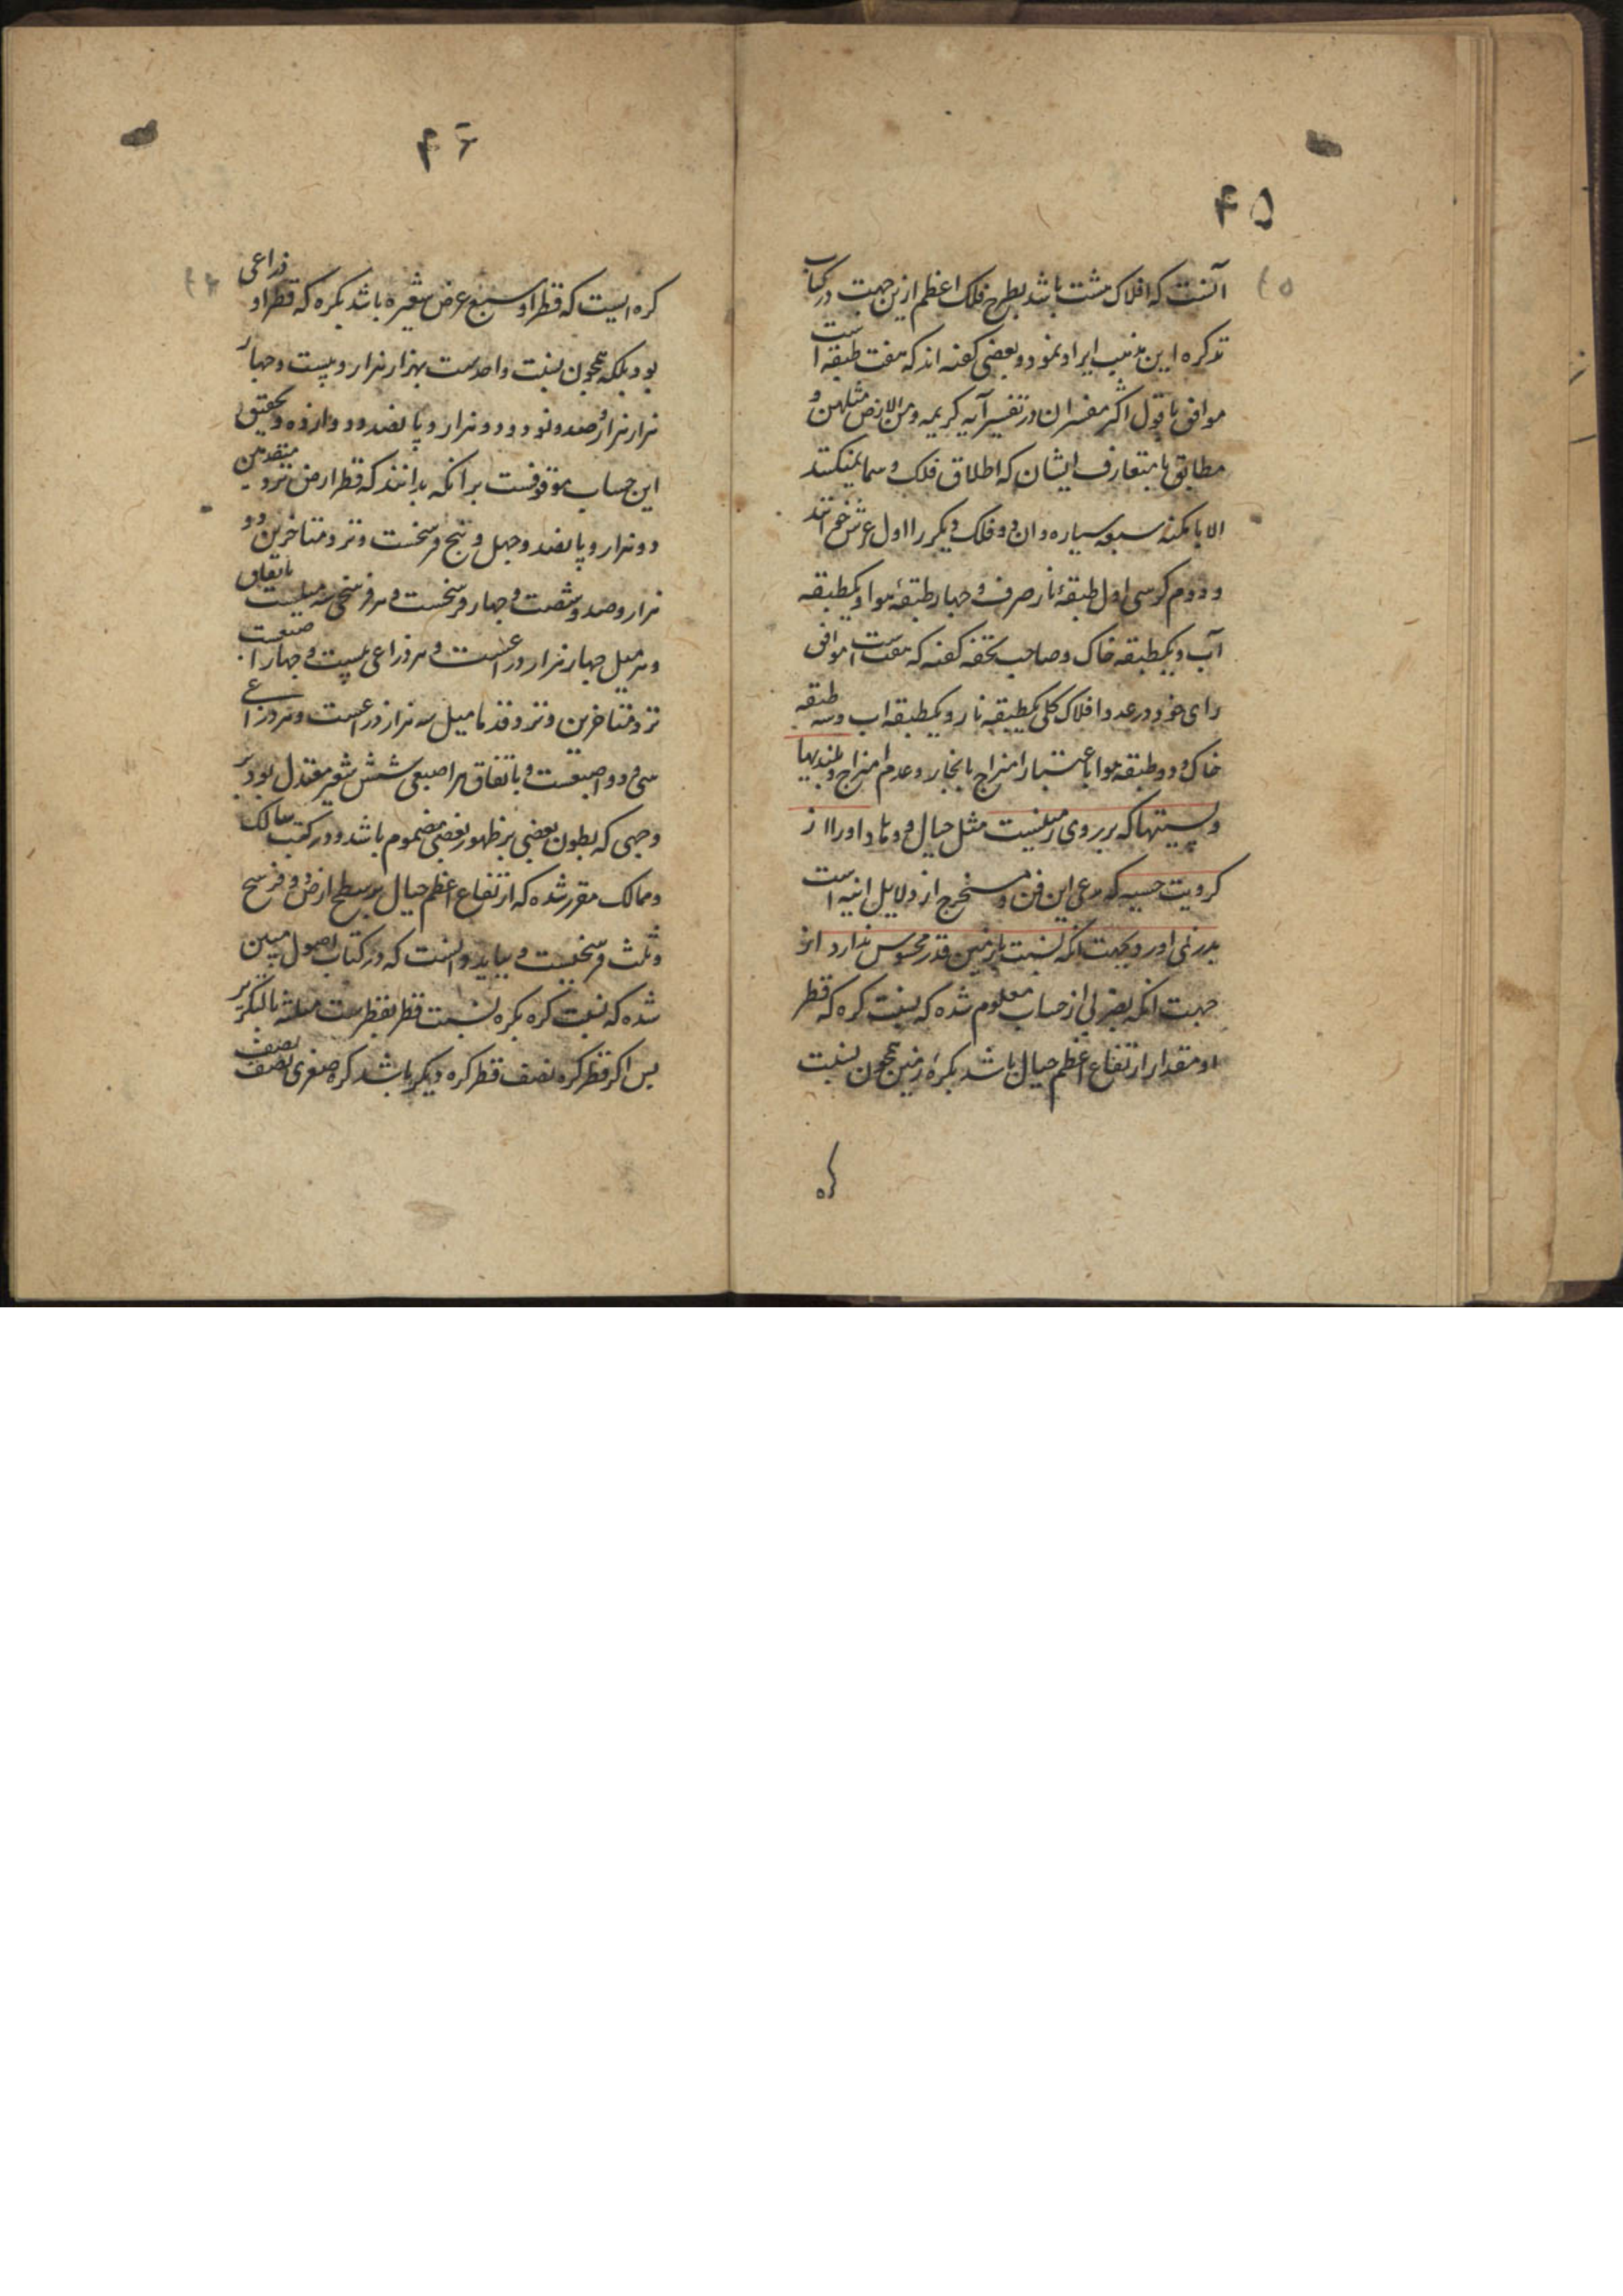 ۴۵
آنست که افلاک هشت باشد بطرح فلک اعظم ازین جهت در کتاب
تذکره این مذهب ایراد نمود و بعضی گفته اند که هفت طبقه است
موافق با قول اکثر مفسران در تفسیر آیه کریمه ومن الارض مثلهن و
مطابق با متعارف ایشان که اطلاق فلک و سما نمیکنند
الا بامکنه سبعه سیاره و ان دو فلک دیکر را اول عرش خوانند
و دوم کرسی اول طبقهٔ نار صرف و چهار طبقهٔ هوا و یکطبقه
آب و یکطبقه خاک و صاحب تحفه گفته که هفت است موافق
رای خود در عدد افلاک کلی یکطبقه نار و یکطبقه اب و سه طبقه
خاک و دو طبقه هوا باعتبار امتزاج بابخار و عدم امتزاج و بلندیها
و پستیها که بر روی زمینست مثل جبال و وهاد او را از
کرویت حسیه که مدعی این فن و مستخرج از دلایل انیه است
بدر نمی اورد بجهت انکه نسبت بزمین قدر محسوس ندارد از
جهت انکه بضربی از حساب معلوم شده که نسبت کره که قطر
او مقدار ارتفاع اعظم جبال باشد بکرهٔ زمین همچون نسبت
کره
۴۶
کره ایست که قطر او سبع عرض شعیره باشد بکره که قطر او ذراعی
بود بلکه همچون نسبت واحدست بهزار هزار و بیست و چهار
هزار هزار و صد و نود و دو هزار و پانصد و دوازده و تحقیق
این حساب موقوفست بر انکه بدانند که قطر ارض نزد متقدمین
دو هزار و پانصد و چهل و پنج فرسخست و نزد متاخرین دو
هزار و صد و شصت و چهار فرسخست و هر فرسخی سه میلست باتفاق
و هر میل چهار هزار ذراعست و هر ذراعی بیست و چهار اصبعست
نزد متاخرین و نزد قدما میل سه هزار ذراعست و هر ذراعی
سی و دو اصبعست و باتفاق هر اصبعی شش شعیر معتدل بود بر
وجهی که بطون بعضی بر ظهور بعضی مضموم باشد و در کتب مسالک
و ممالک مقرر شده که ارتفاع اعظم جبال بر سطح ارض دو فرسخ
و ثلث فرسخست و بباید دانست که در کتاب اصول مبین
شده که نسبت کره بکره نسبت قطر بقطرست مثلثه بالتکریر
پس اکر قطر کره نصف قطر کره دیکر باشد کره صغری نصف نصف